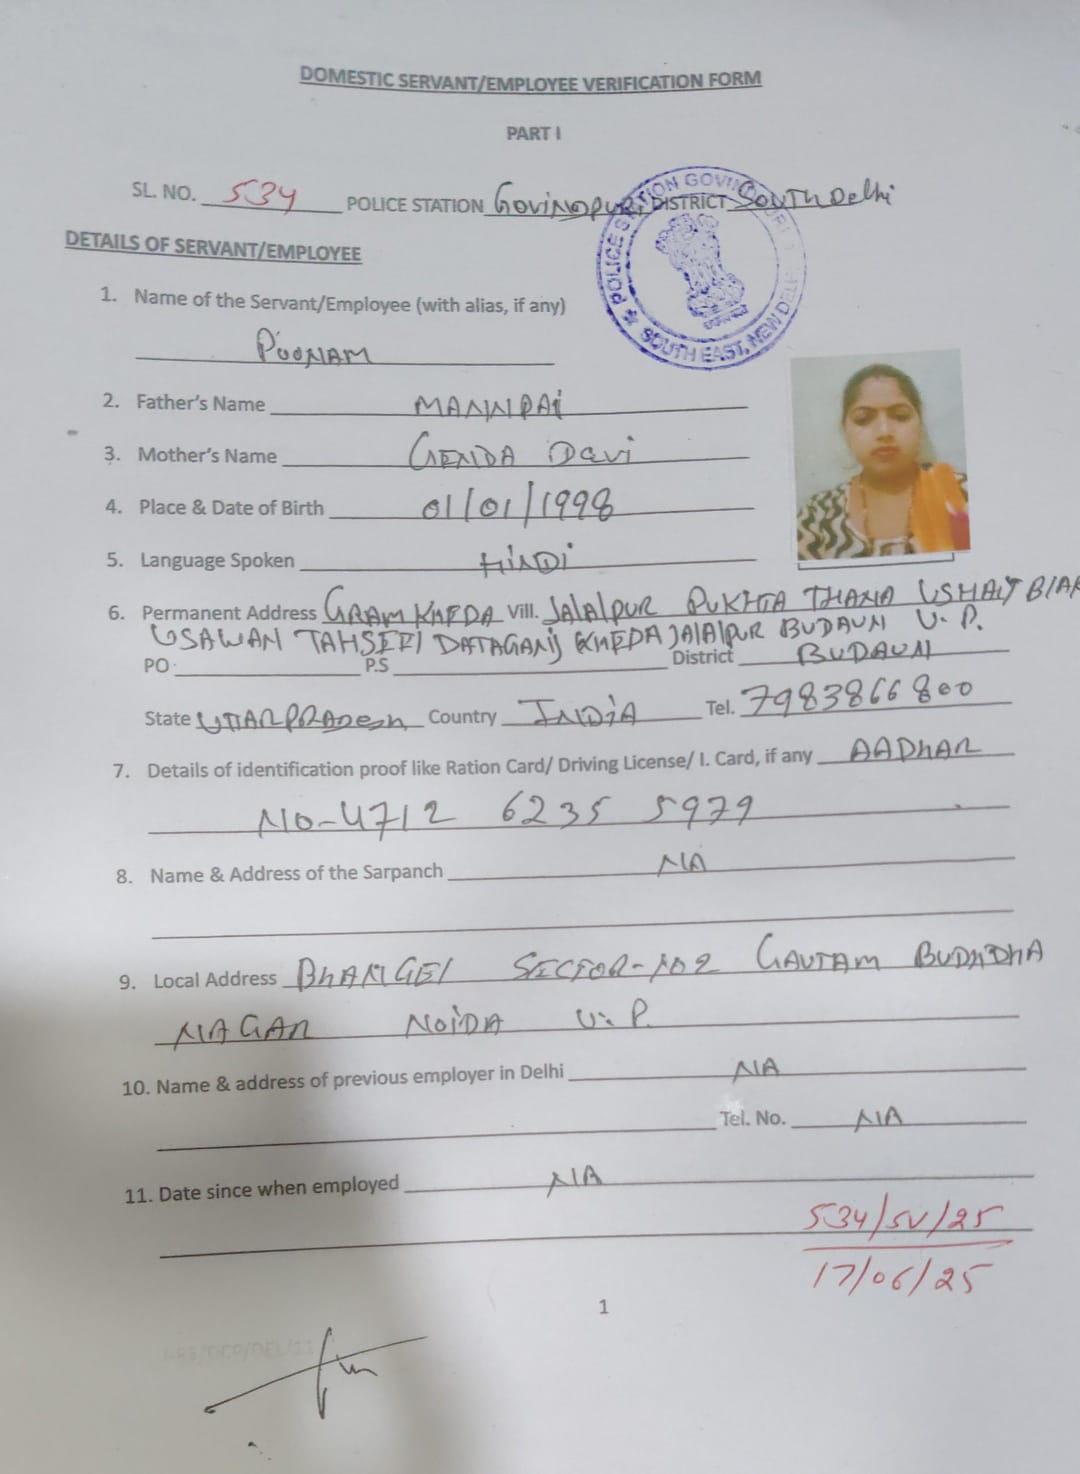 DOMESTIC SERVANT/EMPLOYEE VERIFICATION FORM
PART I
SL. NO. 534 POLICE STATION GOVINDPURI DISTRICT SOUTH Delhi
POLICE STATION GOVINDPURI
SOUTH EAST, NEW DELHI
DETAILS OF SERVANT/EMPLOYEE
1. Name of the Servant/Employee (with alias, if any)
POONAM
2. Father's Name
3. Mother's Name GENDA Devi
4. Place & Date of Birth 01/01/1998
5. Language Spoken HINDI
6. Permanent Address GRAM KHEDA Vill. JAlAlPUR PUKHTA THANA
USAWAN DATAGANJ KHEDA JAlAlPUR BUDAUN U.P.
PO P.S District BUDAUN
State UTTAR PRADESH Country INDIA Tel. 7983866800
7. Details of identification proof like Ration Card/ Driving License/ I. Card, if any AADHAR
NO-4712 6235 5979
8. Name & Address of the Sarpanch NA
9. Local Address BHANGEl SECTOR-102 GAUTAM BUDHDHA
NAGAR NOIDA U.P.
10. Name & address of previous employer in Delhi NA
Tel. No. NA
11. Date since when employed NA
534/SV/25
17/06/25
1